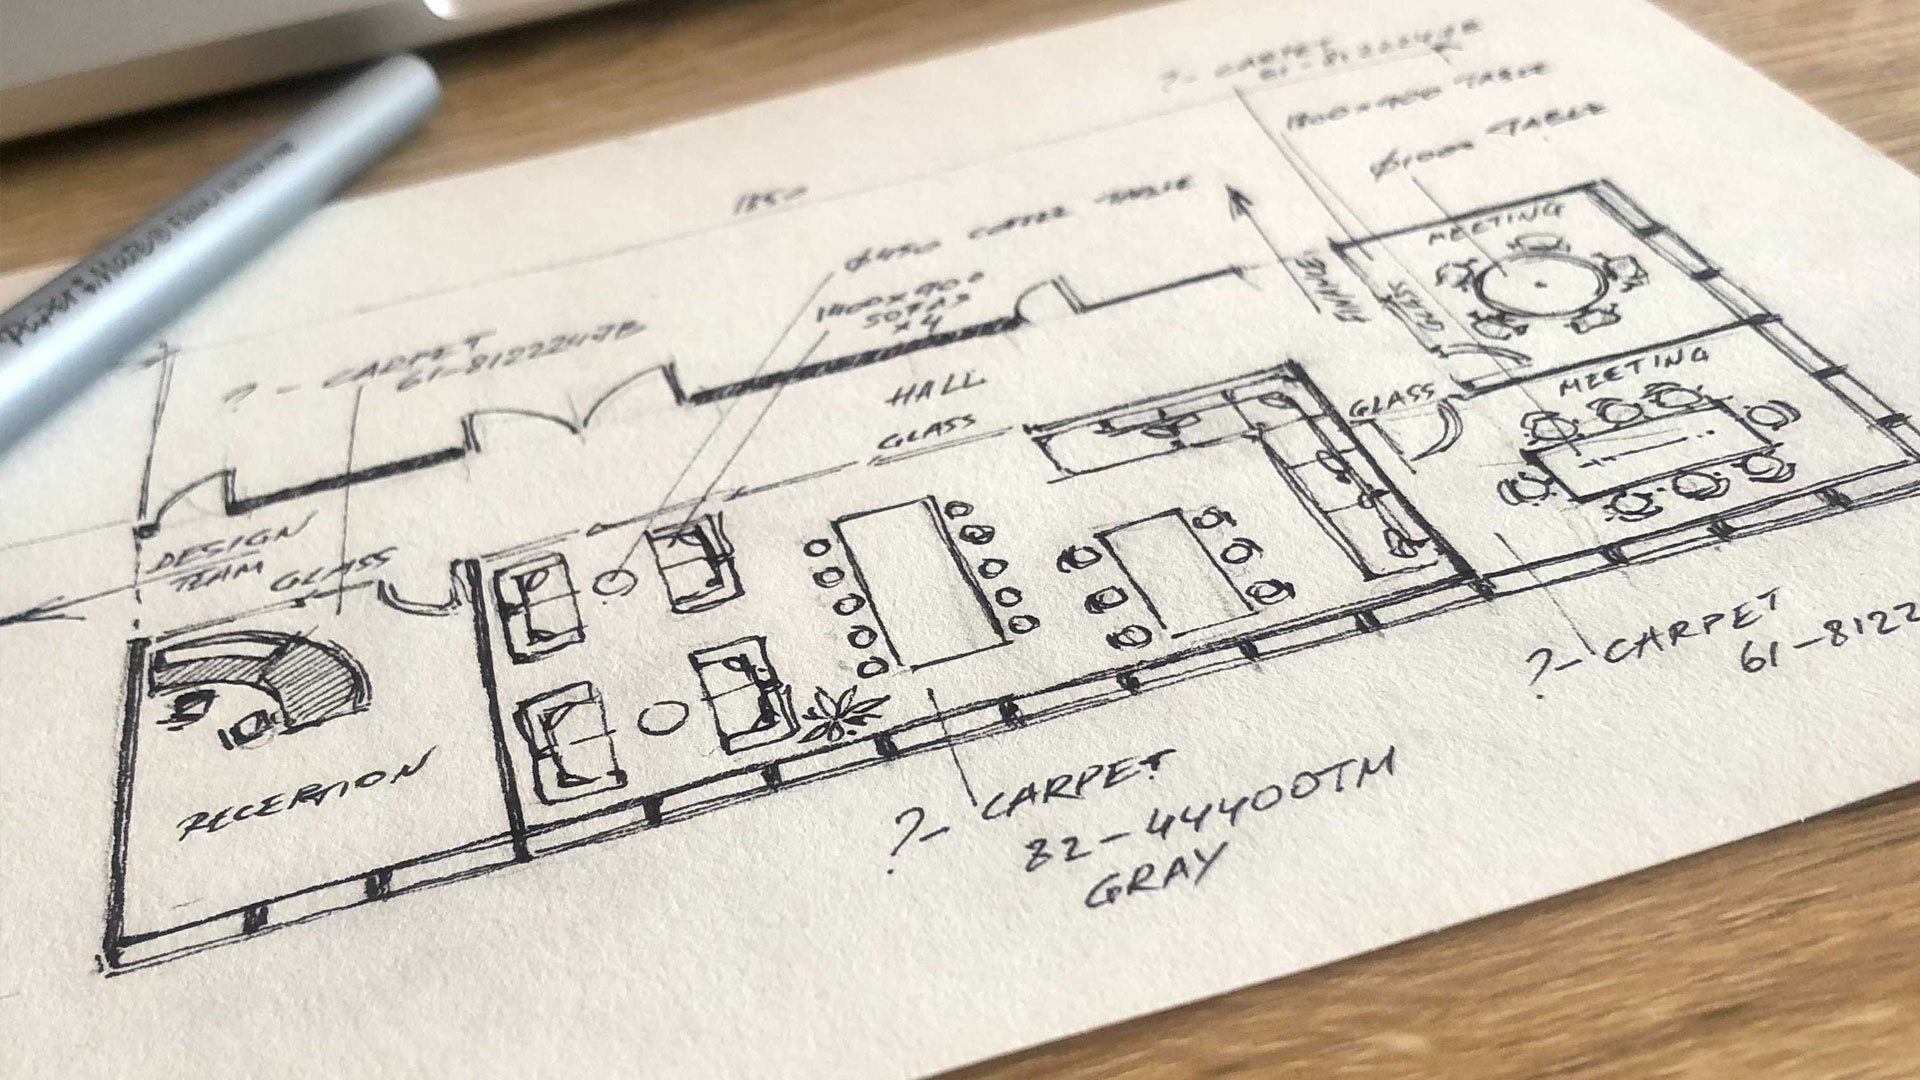 ?- CARPET
61-8122247B
1800×900 TABLE
Ø1000 TABLE
1850
Ø450 COFFEE TABLE
1400×900
SOFAS
×4
?- CARPET
61-8122247B
MEETING
GLASS
MEETING
HALL
GLASS
GLASS
DESIGN
TEAM
GLASS
RECEPTION
?- CARPET
82-44400TM
GRAY
?- CARPET
61-8122